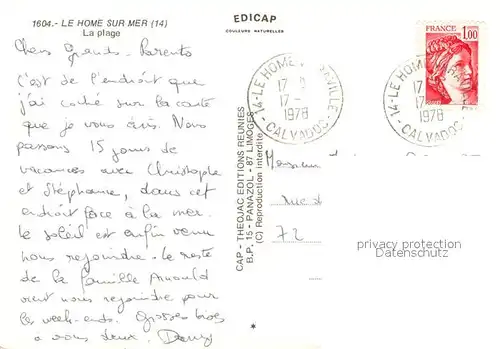 1604.- LE HOME SUR MER (14)
La plage
EDICAP
COULEURS NATURELLES
Chers Grands-Parents
c'est de l'endroit que
j'ai coché sur la carte
que je vous écris. Nous
passons 15 jours de
vacances avec Christophe
et Stéphanie, dans cet
endroit face à la mer.
Le soleil est enfin venu
nous rejoindre. Le reste
de la famille Arnould
vient nous rejoindre pour
les week-ends. Grosses bises
à vous deux.
CAP - THEOJAC EDITIONS REUNIES
B.P. 15 - PANAZOL - 87 LIMOGES
(C) Reproduction interdite
*
14-LE HOME VILLE
17
17-
1978
- CALVADOS -
FRANCE
1,00
14-LE HOME
17
17
1978
- CALVADOS
Monsieur
rue
72
privacy protection
Datenschutz